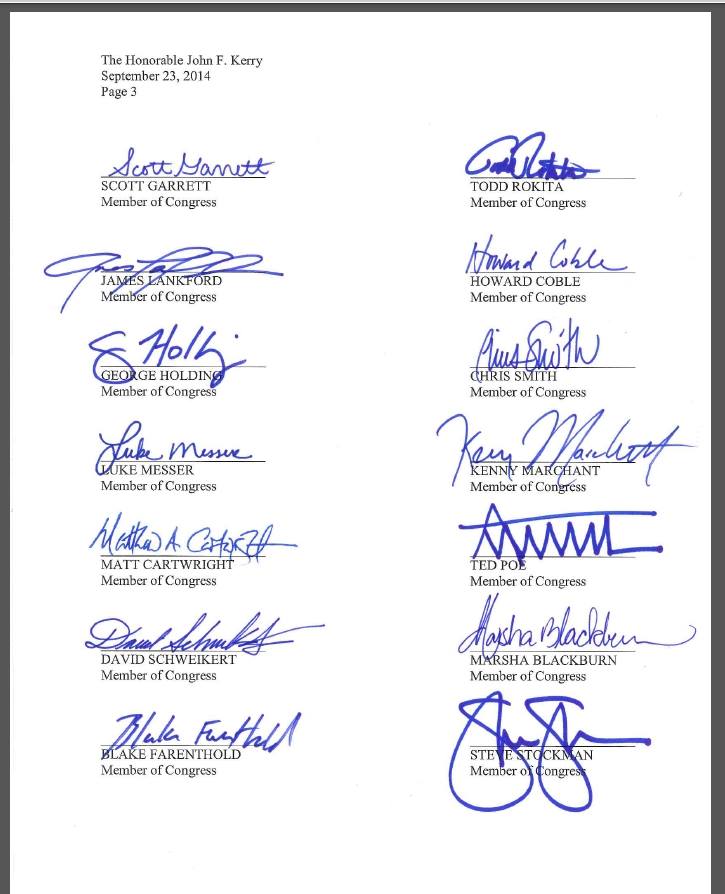 The Honorable John F. Kerry
September 23, 2014
Page 3
Scott Garrett
SCOTT GARRETT
Member of Congress
Todd Rokita
TODD ROKITA
Member of Congress
JAMES LANKFORD
Member of Congress
Howard Coble
HOWARD COBLE
Member of Congress
G Holding
GEORGE HOLDING
Member of Congress
Chris Smith
CHRIS SMITH
Member of Congress
Luke Messer
LUKE MESSER
Member of Congress
Kenny Marchant
KENNY MARCHANT
Member of Congress
Matthew A. Cartwright
MATT CARTWRIGHT
Member of Congress
TED POE
Member of Congress
David Schweikert
DAVID SCHWEIKERT
Member of Congress
Marsha Blackburn
MARSHA BLACKBURN
Member of Congress
Blake Farenthold
BLAKE FARENTHOLD
Member of Congress
STEVE STOCKMAN
Member of Congress